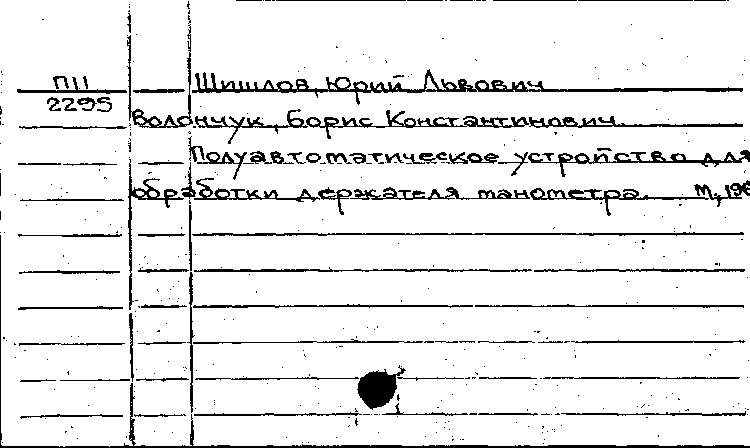 П11 Шишлов, Юрий Львович
2295
Волончук, Борис Константинович.
Полуавтоматическое устройство для
обработки держателя манометра. М, 196